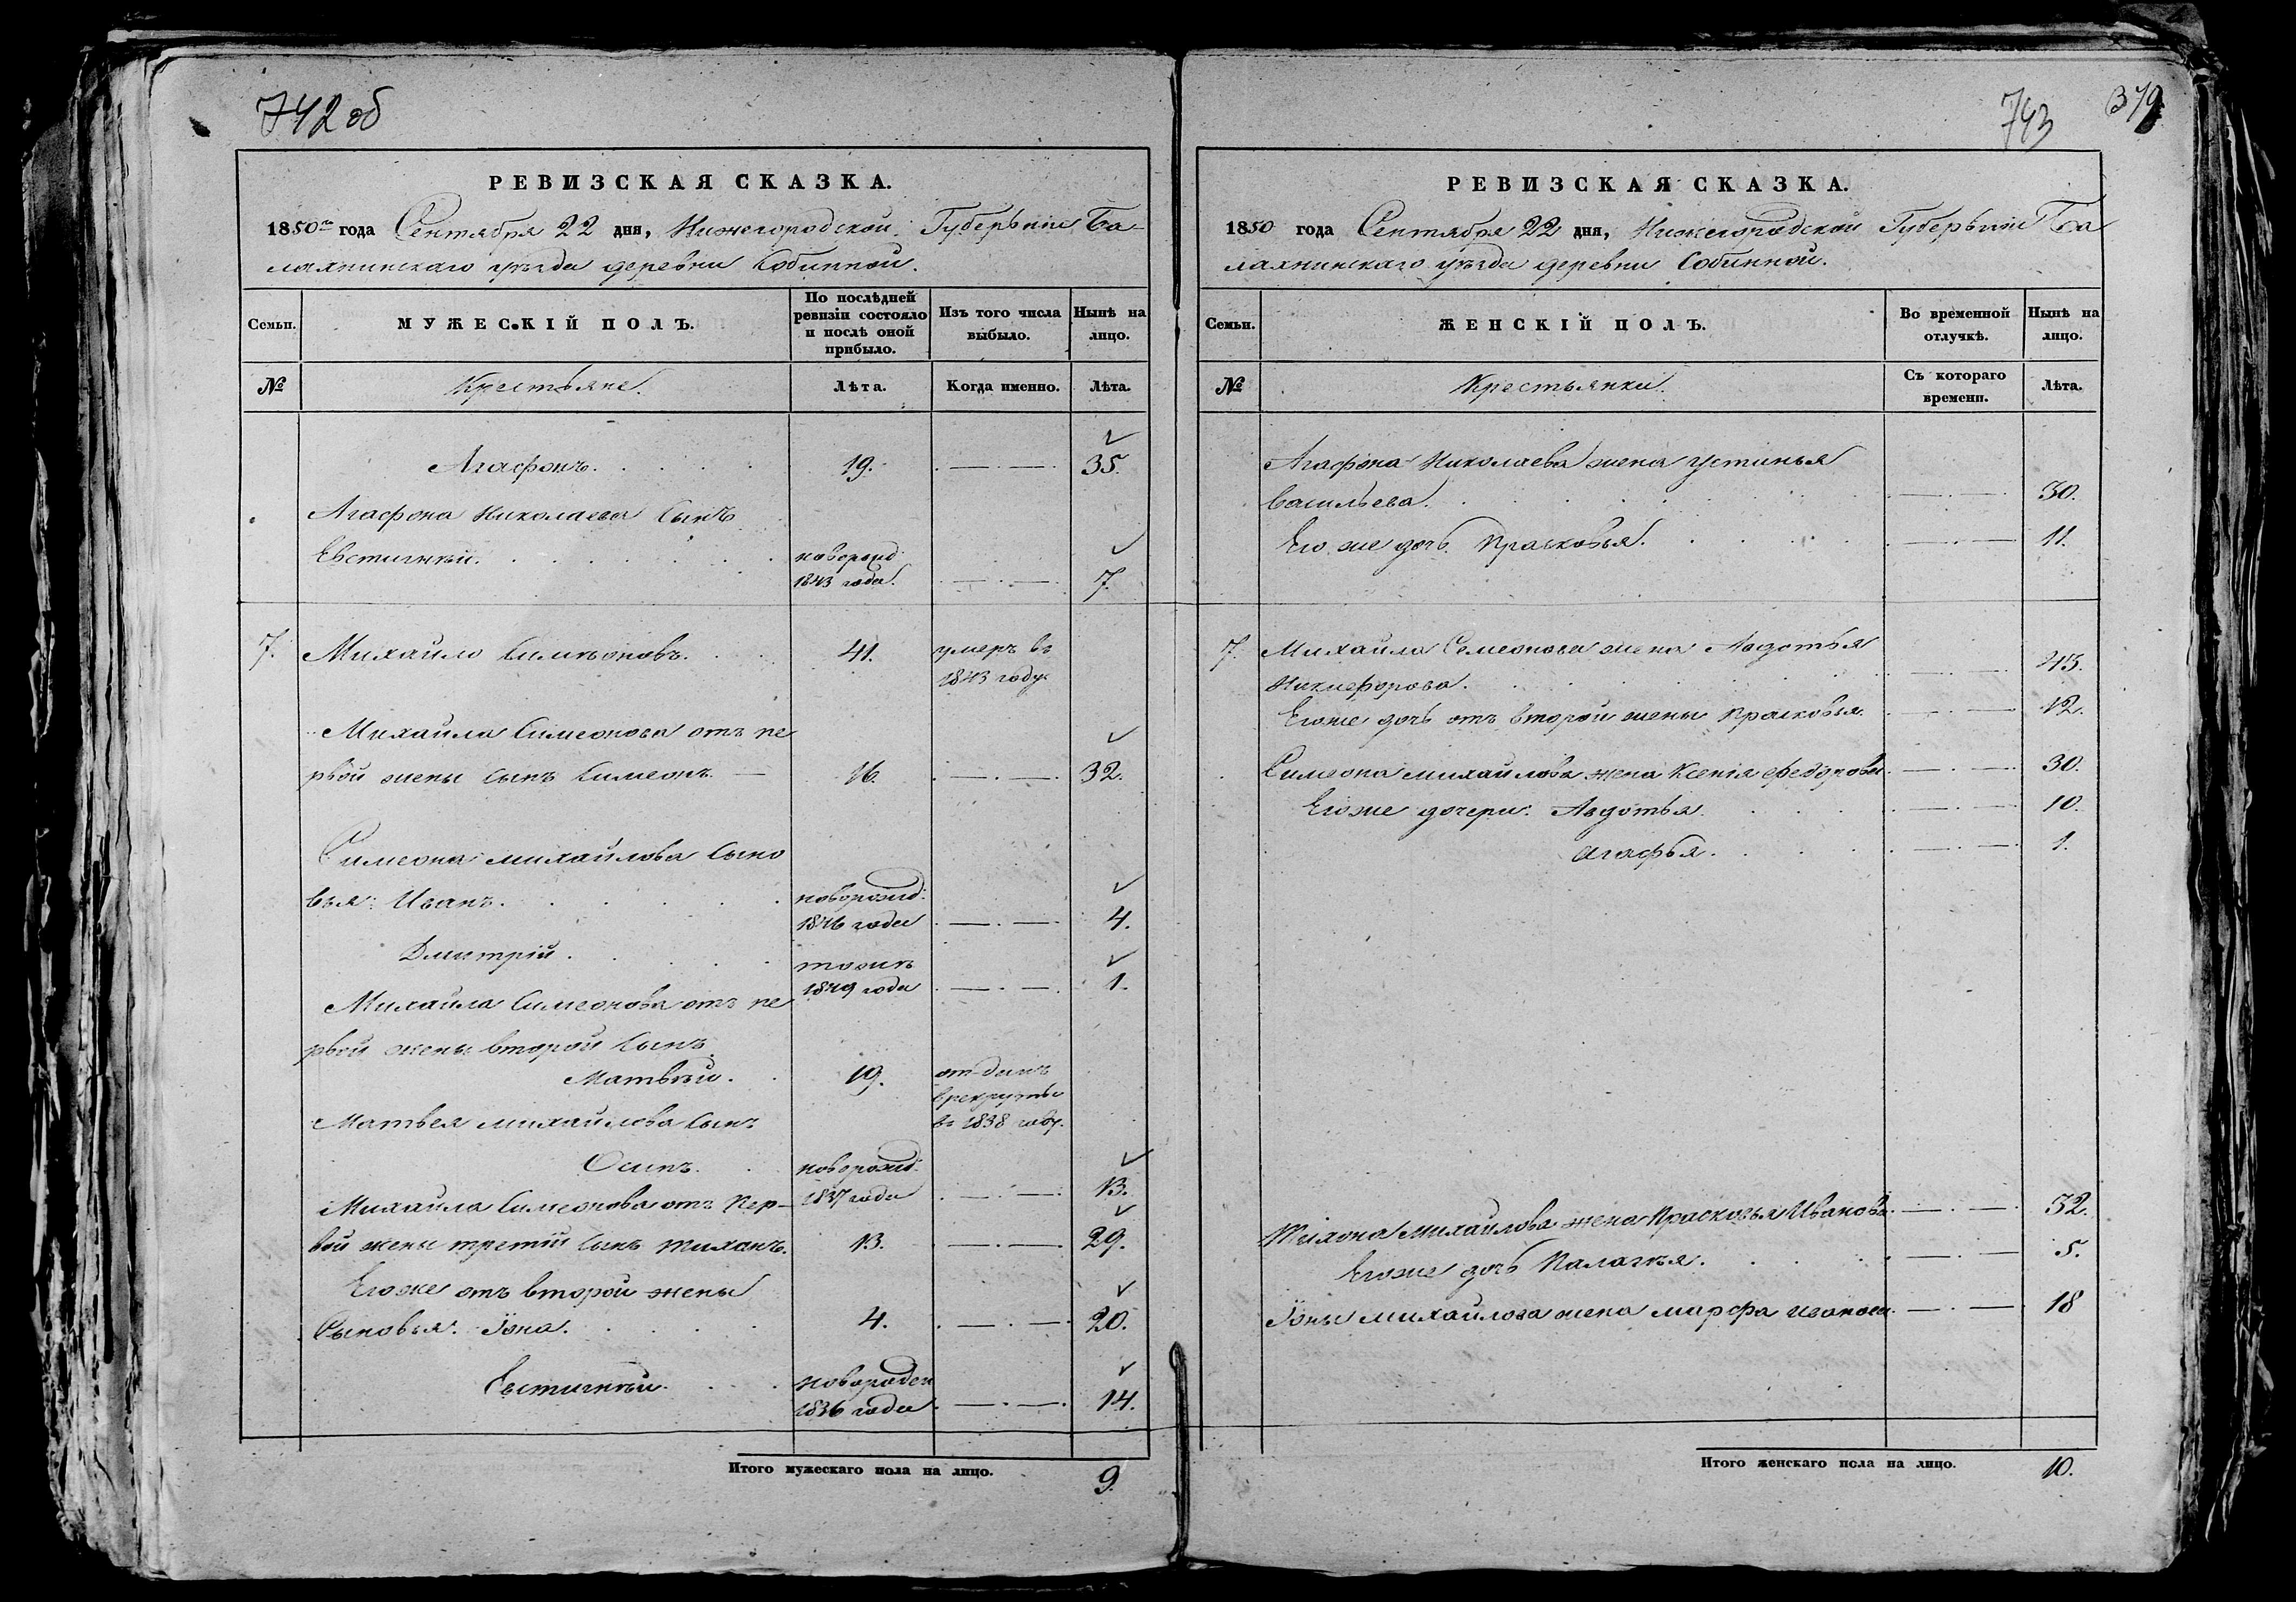 742 об
РЕВИЗСКАЯ СКАЗКА.
1850 года Сентября 22 дня, Нижегородской Губернии Ба-
лахнинскаго уѣзда деревни Собинной.
Семьи.
МУЖЕСКІЙ ПОЛЪ.
По послѣдней ревизіи состояло и послѣ оной прибыло.
Изъ того числа выбыло.
Нынѣ на лицо.
№
Крестьяне.
Лѣта.
Когда именно.
Лѣта.
Агафонъ. 19. 35.
Агафона Николаева сынъ
Евстигнѣй. новорожд:
1843 года. 7.
7. Михайло Симеоновъ. 41. умеръ въ
1843 году
Михайла Симеонова отъ пе
рвой жены сынъ Симеонъ. — 16. 32.
Симеона Михайлова сыно
вья: Иванъ. новорожд:
1846 года 4.
Дмитрій. тожъ
1849 года 1.
Михайла Симеонова отъ пе
рвой жены второй сынъ
Матвѣй. 19. отданъ
в рекруты
въ 1838 году.
Матвея Михайлова сынъ
Осипъ. новорожд:
1837 года 13.
Михайла Симеонова отъ пер-
вой жены третій сынъ Тиханъ. 13. 29.
Его же отъ второй жены
Сыновья. Іона. 4. 20.
Евстигнѣй. новорожден
1836 года 14.
Итого мужескаго пола на лицо. 9.
743
379
РЕВИЗСКАЯ СКАЗКА.
1850 года Сентября 22 дня, Нижегородской Губерніи Ба
лахнинскаго уѣзда деревни Собинной.
Семьи.
ЖЕНСКІЙ ПОЛЪ.
Во временной отлучкѣ.
Нынѣ на лицо.
№
Крестьянки.
Съ котораго времени.
Лѣта.
Агафона Николаева жена Устинья
Васильева. 30.
Его же дочь Прасковья. 11.
7. Михайла Семеонова жена Авдотья
Никифорова. 45.
Егоже дочь отъ второй жены Прасковья. 12.
Симеона Михайлова жена Ксенія Федорова 30.
Егоже дочери: Авдотья. 10.
Агафья. 1.
Тихона Михайлова жена Прасковья Иванова 32.
Егоже дочь Палагея. 5.
Іоны Михайлова жена Марфа Иванова 18
Итого женскаго пола на лицо. 10.